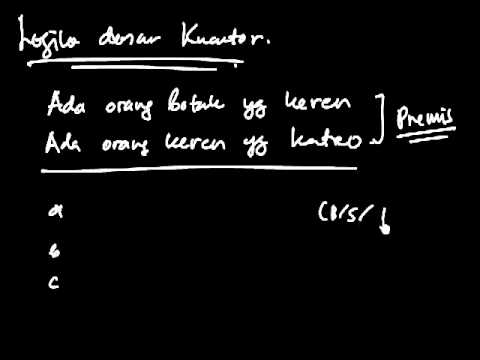 Logika dasar Kuantor.
Ada orang Botak yg keren
Ada orang keren yg katro.
Premis
a
b
c
(B/S/